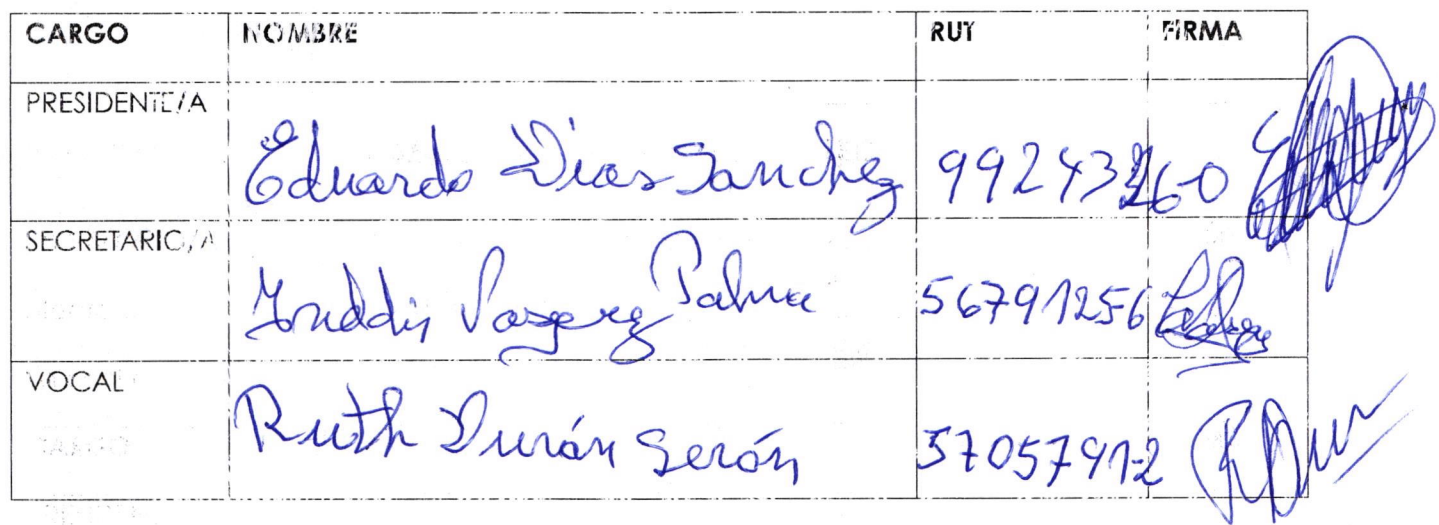 CARGO NOMBRE RUT FIRMA
PRESIDENTE/A Eduardo Dias Sanchez
SECRETARIO/A Freddis Vasquez Palma 56791256
VOCAL Ruth Durán Serón 5705791-2